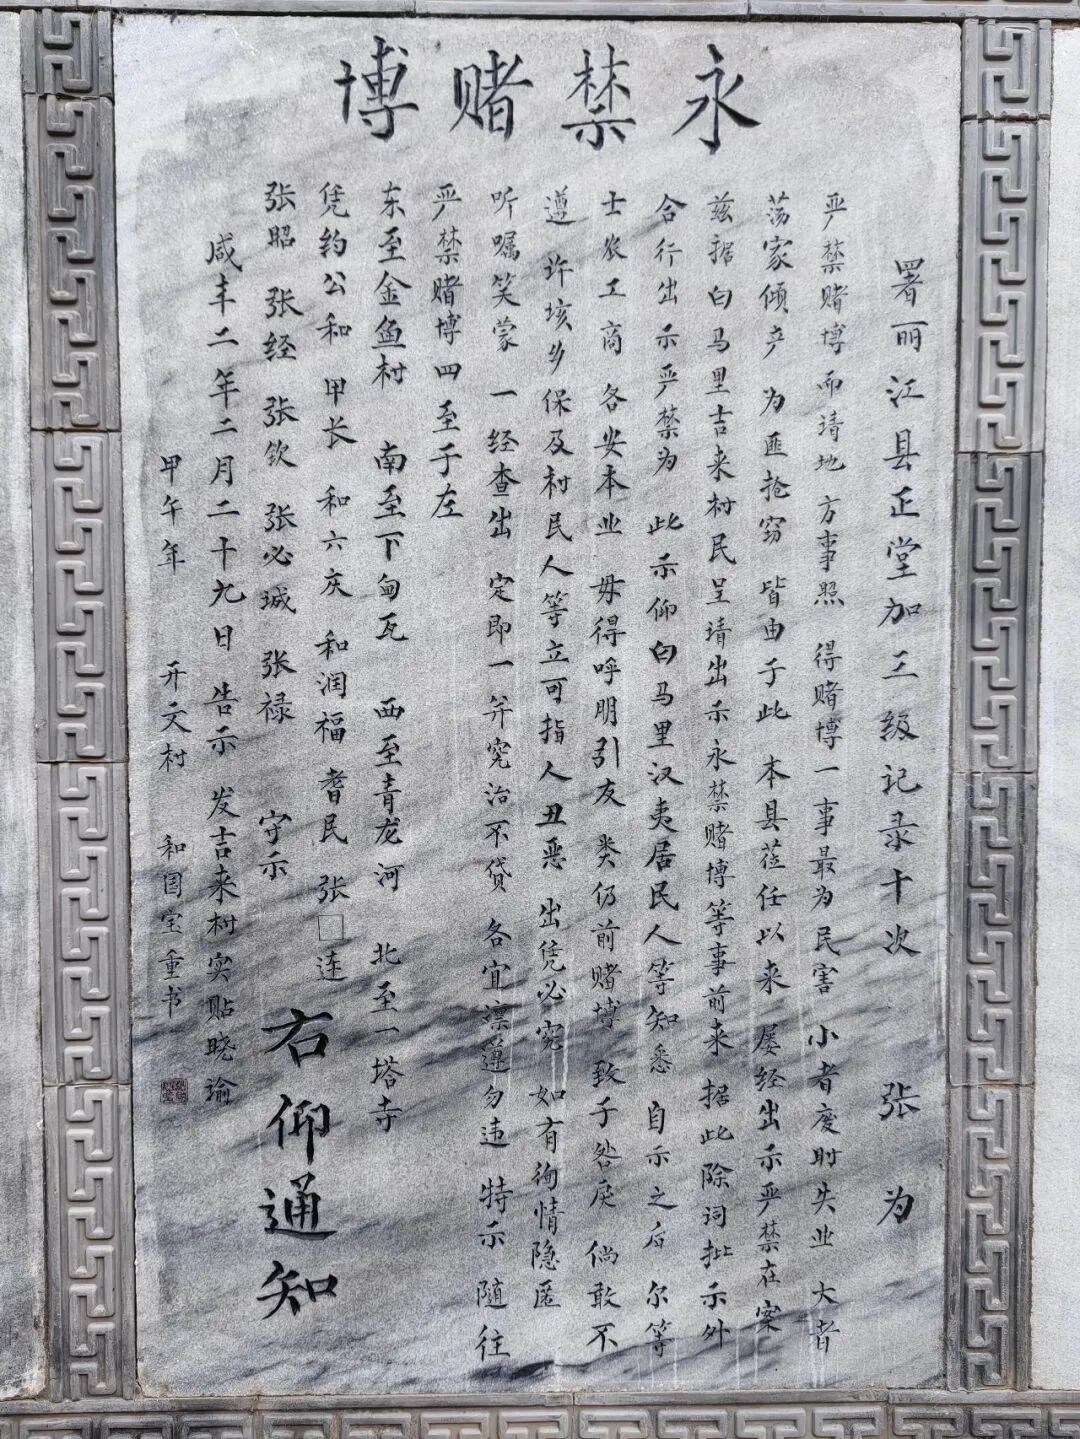 永禁赌博
署丽江县正堂加三级记录十次 张 为
严禁赌博而请地方事照 得赌博一事最为民害 小者废时失业 大者
荡家倾产 为匪抢窃 皆由于此 本县莅任以来 屡经出示严禁在案
兹据白马里吉来村民呈请出示永禁赌博等事前来 据此除词批示外
合行出示严禁为 此示仰白马里汉夷居民人等知悉 自示之后 尔等
士农工商 各安本业 毋得呼明引友 类仍前赌博 致于咎戾 倘敢不
遵 许该乡保及村民人等立可指人丑恶 出凭必究 如有徇情隐匿
听嘱笑蒙 一经查出 定即一并究治不贷 各宜凛遵勿违 特示 随往
严禁赌博四至于左
东至金鱼村 南至下甸瓦 西至青龙河 北至一塔寺
凭约公和 甲长 和六庆 和润福 耆民 张□连
张昭 张经 张钦 张必诚 张禄 守示
右仰通知
咸丰二年二月二十九日 告示 发吉来村实贴晓瑜
甲午年 开文村 和国宝重书